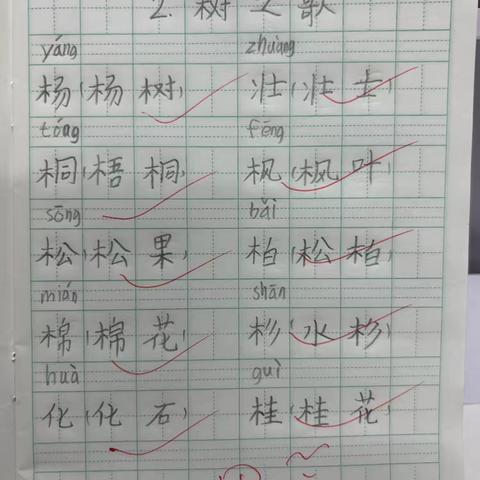 2. 树之歌
yáng zhuàng
杨(杨树) 壮(壮士)
tóng fēng
桐(梧桐) 枫(枫叶)
sōng bǎi
松(松果) 柏(松柏)
mián shān
棉(棉花) 杉(水杉)
huà guì
化(化石) 桂(桂花)